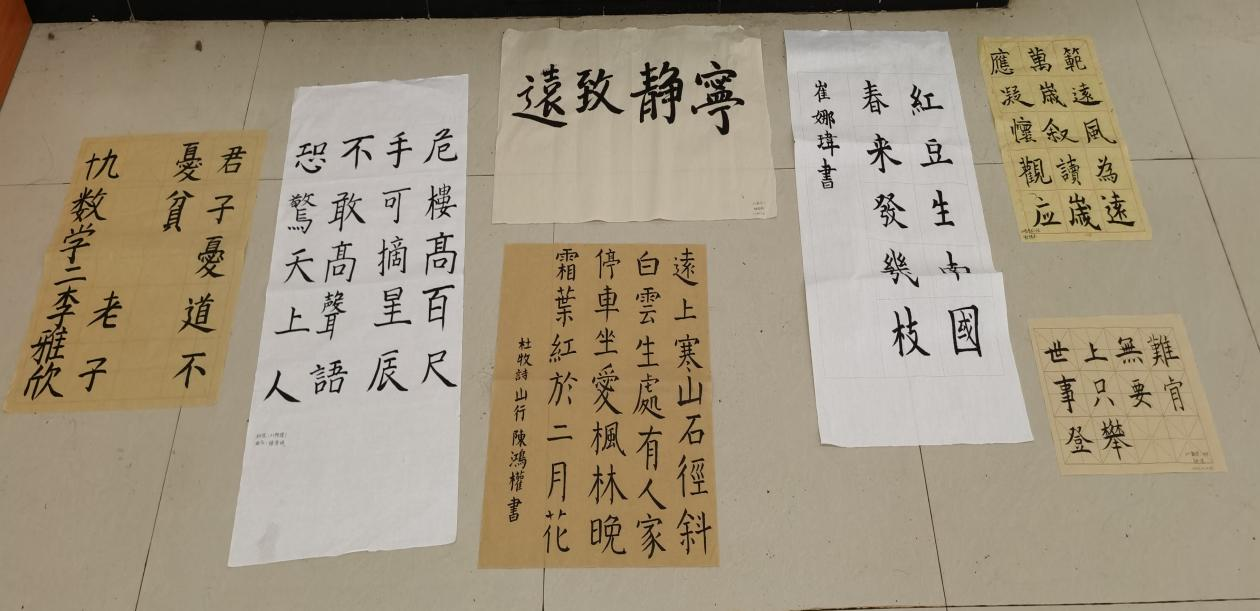 君子憂道不
憂貧
老子
十九数学二李雅欣
危樓高百尺
手可摘星辰
不敢高聲語
恐驚天上人
寧靜致遠
遠上寒山石徑斜
白雲生處有人家
停車坐愛楓林晚
霜葉紅於二月花
杜牧詩山行陳鴻權書
紅豆生南國
春来發幾枝
崔娜瑋書
範遠風為遠
萬歲叙讀歲
應凝懷觀应
難宜
無要攀
上只登
世事